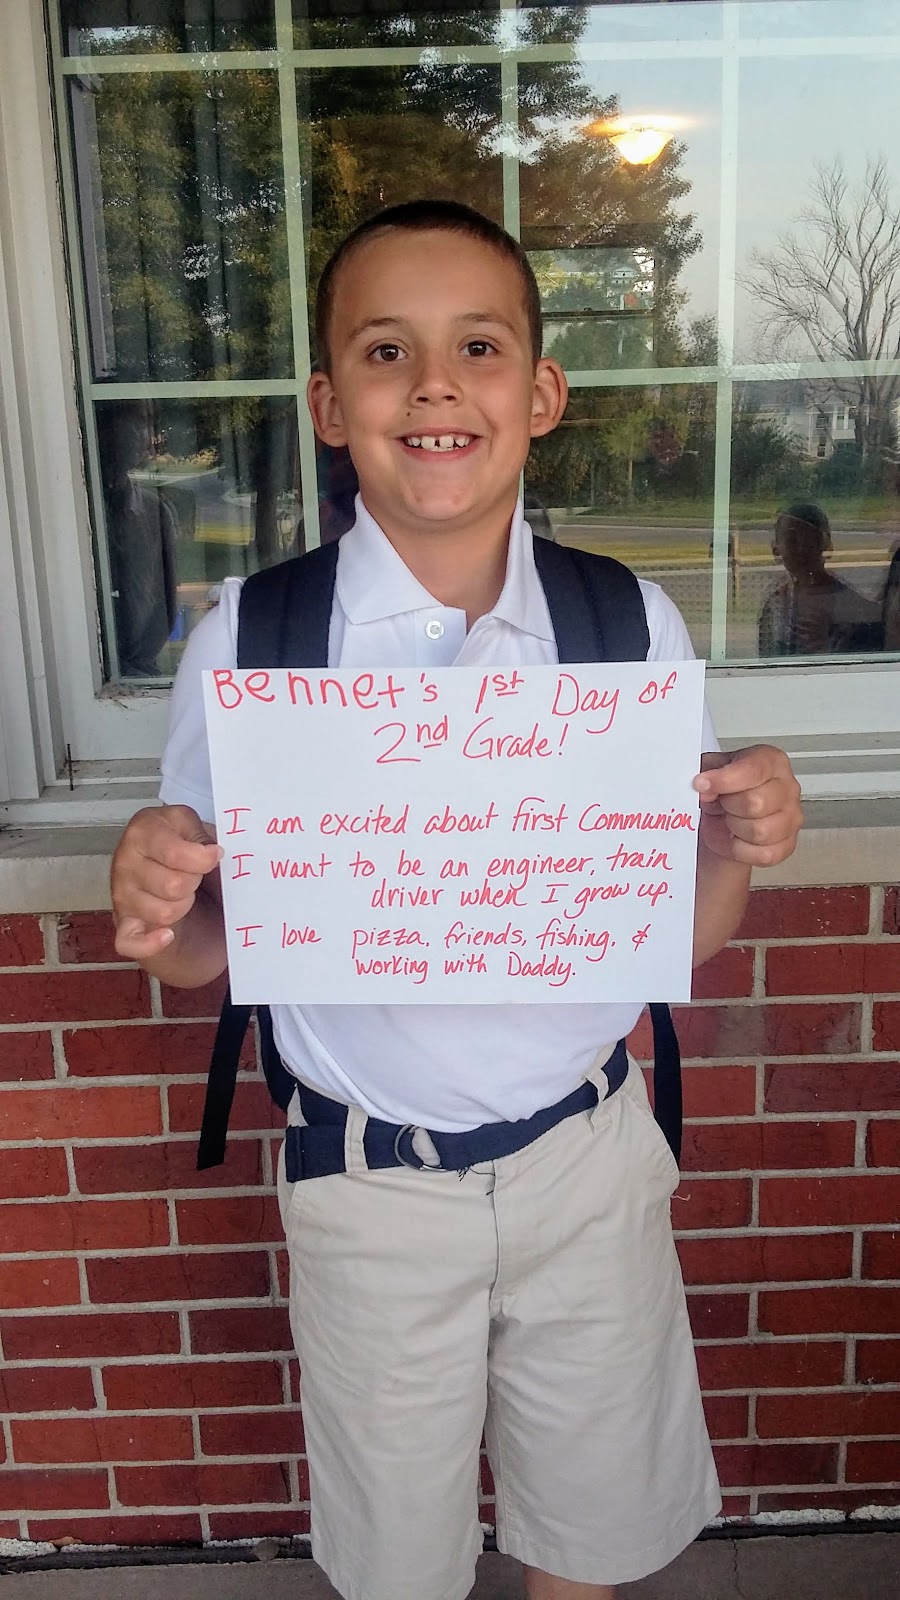 Bennet's 1st Day of
2nd Grade!
I am excited about first Communion
I want to be an engineer, train
driver when I grow up.
I love pizza, friends, fishing, &
working with Daddy.